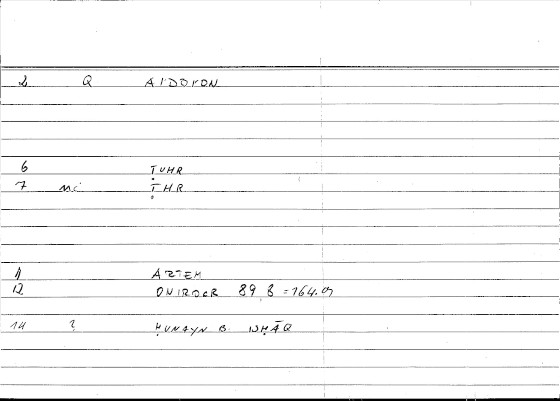 2 Q AIDOION
6 ṬUHR
7 mi ṬHR
11 ARTEM
12 ONIROCR 89, 8 = 164.9
14 ? ḤUNAYN B. ISḤĀQ